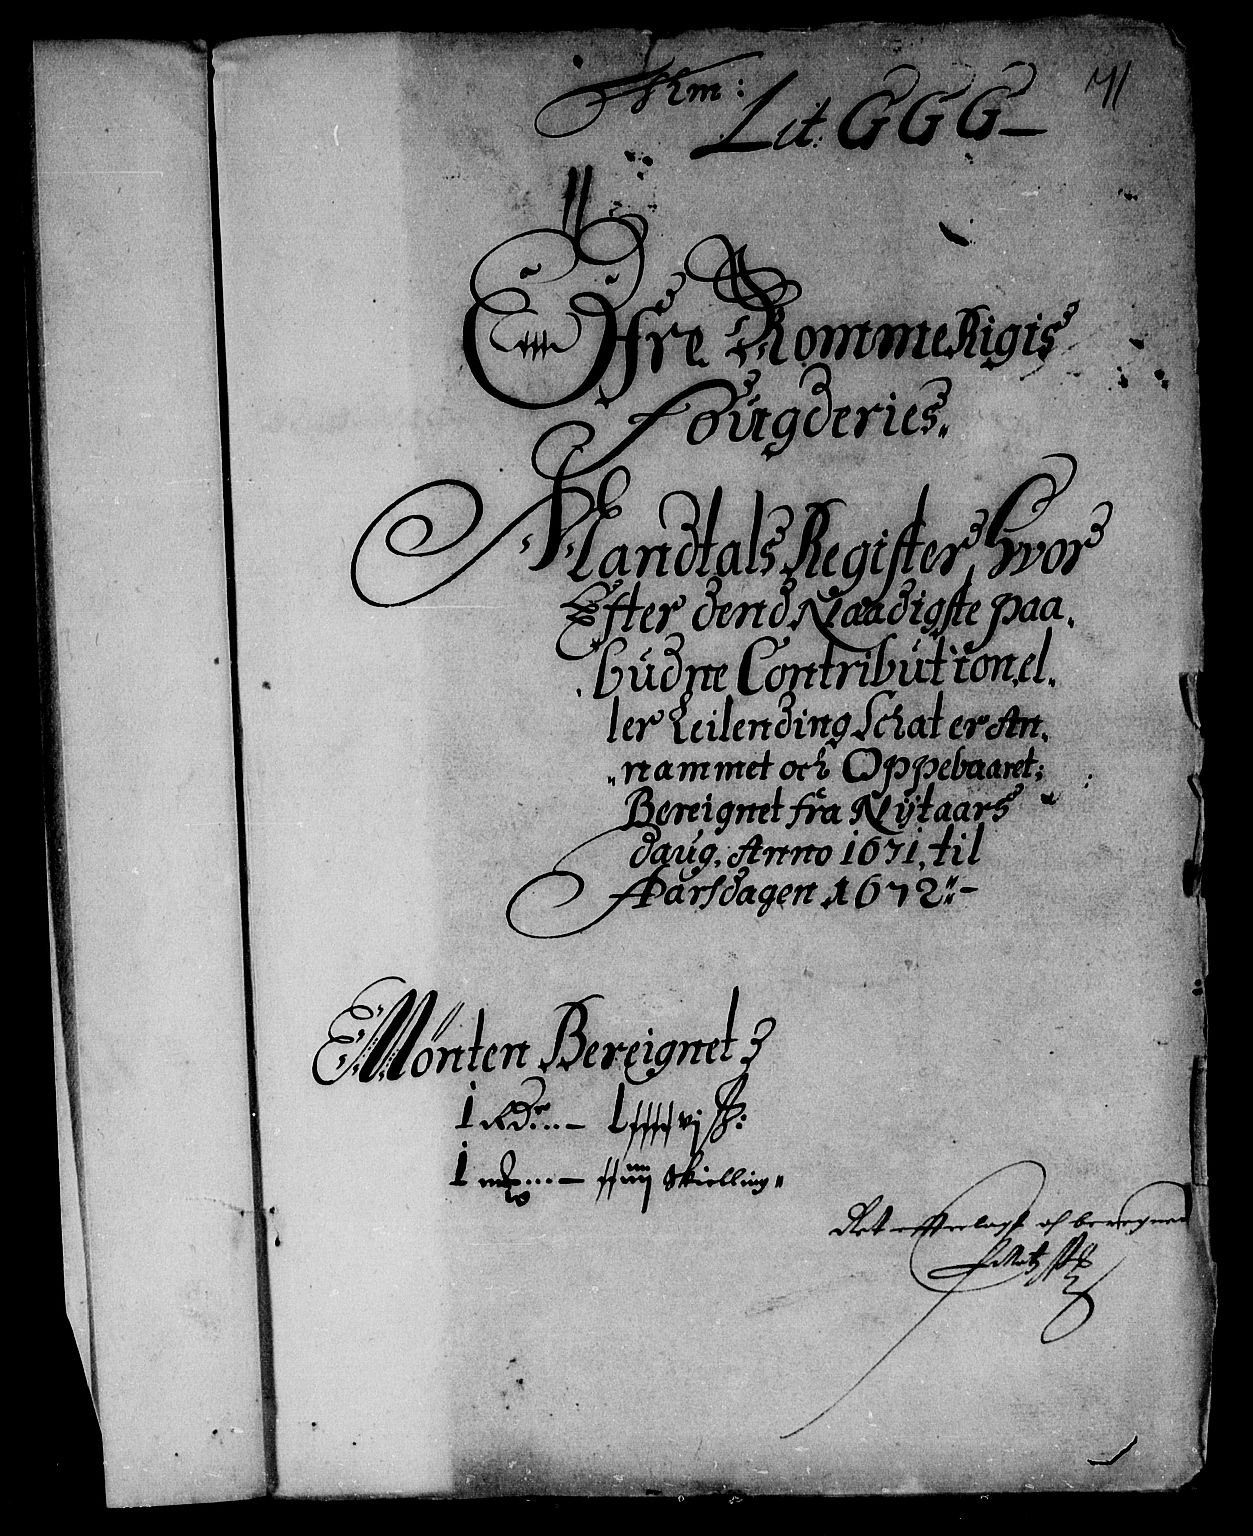 71
Lit: GGG
Öfre RommeRigis
Fougderies.
Mandtals Register, Hvor
Efter dend Naadigste paa,
budne Contribution, el,
ler Leilending Schat er An,
nammet och Oppebaaret;
Bereignet fra Nÿtaars
daug, Anno 1671, til
Aarsdagen 1672
Mønten Bereignet
1 Rdr... — Lffffvj ß:
1 mk... — Skielling
Ret efterlagt oc beregnet